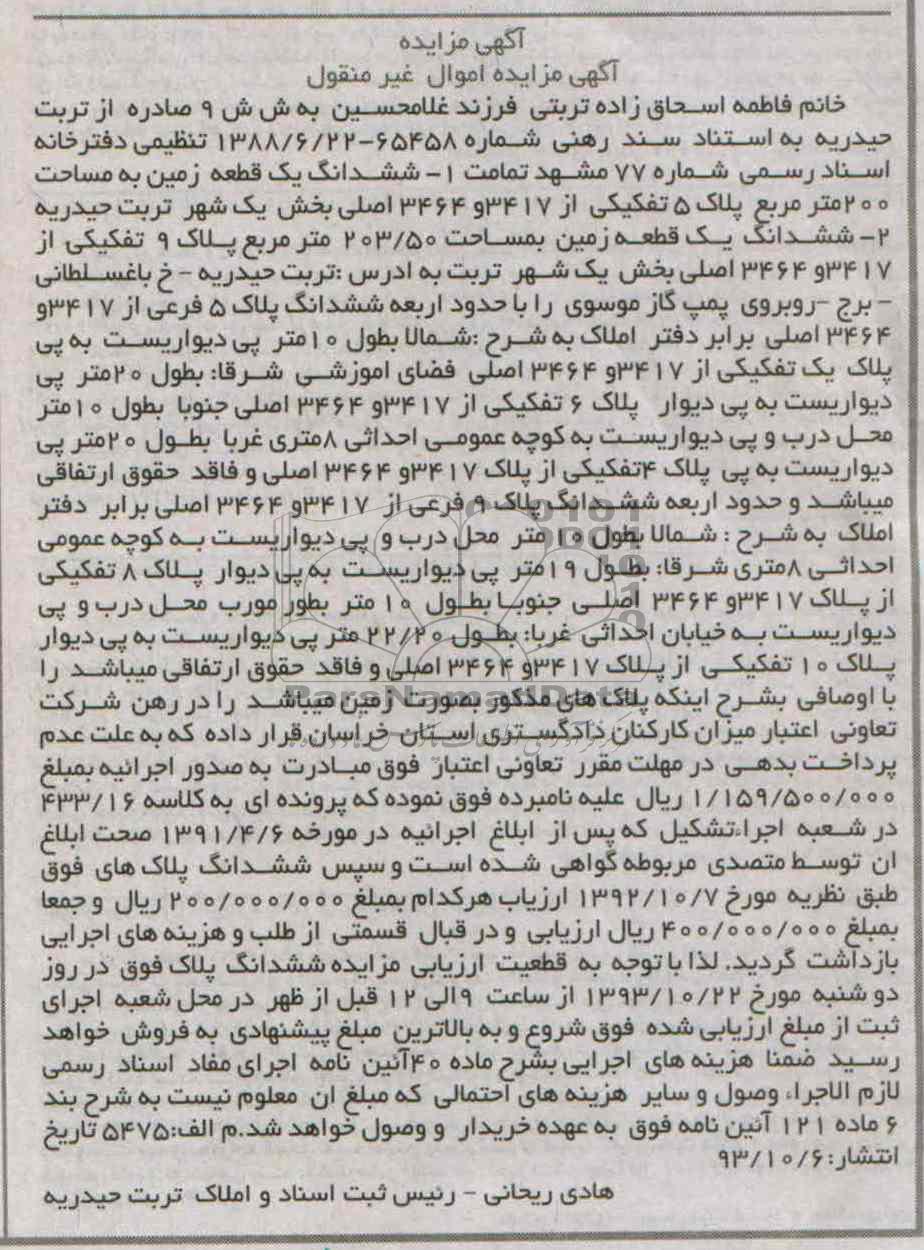 آگهی مزایده
آگهی مزایده اموال غیر منقول
خانم فاطمه اسحاق زاده تربتی فرزند غلامحسین به ش ش ۹ صادره از تربت
حیدریه به استناد سند رهنی شماره ۶۵۴۵۸-۱۳۸۸/۶/۲۲ تنظیمی دفترخانه
اسناد رسمی شماره ۷۷ مشهد تمامت ۱- ششدانگ یک قطعه زمین به مساحت
۲۰۰متر مربع پلاک ۵ تفکیکی از ۳۴۱۷و ۳۴۶۴ اصلی بخش یک شهر تربت حیدریه
۲- ششدانگ یک قطعه زمین بمساحت ۲۰۳/۵۰ متر مربع پلاک ۹ تفکیکی از
۳۴۱۷و ۳۴۶۴ اصلی بخش یک شهر تربت به ادرس :تربت حیدریه - خ باغسلطانی
- برج -روبروی پمپ گاز موسوی را با حدود اربعه ششدانگ پلاک ۵ فرعی از ۳۴۱۷و
۳۴۶۴ اصلی برابر دفتر املاک به شرح :شمالا بطول ۱۰متر پی دیواریست به پی
پلاک یک تفکیکی از ۳۴۱۷و ۳۴۶۴ اصلی فضای اموزشی شرقا: بطول ۲۰متر پی
دیواریست به پی دیوار پلاک ۶ تفکیکی از ۳۴۱۷و ۳۴۶۴ اصلی جنوبا بطول ۱۰متر
محل درب و پی دیواریست به کوچه عمومی احداثی ۸متری غربا بطول ۲۰متر پی
دیواریست به پی پلاک ۴تفکیکی از پلاک ۳۴۱۷و ۳۴۶۴ اصلی و فاقد حقوق ارتفاقی
میباشد و حدود اربعه ششدانگ پلاک ۹ فرعی از ۳۴۱۷و ۳۴۶۴ اصلی برابر دفتر
املاک به شرح : شمالا بطول ۱۰متر محل درب و پی دیواریست به کوچه عمومی
احداثی ۸متری شرقا: بطول ۱۹متر پی دیواریست به پی دیوار پلاک ۸ تفکیکی
از پلاک ۳۴۱۷و ۳۴۶۴ اصلی جنوبا بطول ۱۰ متر بطور مورب محل درب و پی
دیواریست به خیابان احداثی غربا: بطول ۲۲/۲۰ متر پی دیواریست به پی دیوار
پلاک ۱۰ تفکیکی از پلاک ۳۴۱۷و ۳۴۶۴ اصلی و فاقد حقوق ارتفاقی میباشد را
با اوصافی بشرح اینکه پلاک های مذکور بصورت زمین میباشد را در رهن شرکت
تعاونی اعتبار میزان کارکنان دادگستری استان خراسان قرار داده که به علت عدم
پرداخت بدهی در مهلت مقرر تعاونی اعتبار فوق مبادرت به صدور اجرائیه بمبلغ
۱/۱۵۹/۵۰۰/۰۰۰ ریال علیه نامبرده فوق نموده که پرونده ای به کلاسه ۴۳۳/۱۶
در شعبه اجراءتشکیل که پس از ابلاغ اجرائیه در مورخه ۱۳۹۱/۴/۶ صحت ابلاغ
ان توسط متصدی مربوطه گواهی شده است و سپس ششدانگ پلاک های فوق
طبق نظریه مورخ ۱۳۹۲/۱۰/۷ ارزیاب هرکدام بمبلغ ۲۰۰/۰۰۰/۰۰۰ ریال و جمعا
بمبلغ ۴۰۰/۰۰۰/۰۰۰ ریال ارزیابی و در قبال قسمتی از طلب و هزینه های اجرایی
بازداشت گردید. لذا با توجه به قطعیت ارزیابی مزایده ششدانگ پلاک فوق در روز
دو شنبه مورخ ۱۳۹۳/۱۰/۲۲ از ساعت ۹الی ۱۲ قبل از ظهر در محل شعبه اجرای
ثبت از مبلغ ارزیابی شده فوق شروع و به بالاترین مبلغ پیشنهادی به فروش خواهد
رسید ضمنا هزینه های اجرایی بشرح ماده ۴۰آئین نامه اجرای مفاد اسناد رسمی
لازم الاجراء وصول و سایر هزینه های احتمالی که مبلغ ان معلوم نیست به شرح بند
۶ ماده ۱۲۱ آئین نامه فوق به عهده خریدار و وصول خواهد شد.م الف:۵۴۷۵ تاریخ
انتشار:۹۳/۱۰/۶
هادی ریحانی - رئیس ثبت اسناد و املاک تربت حیدریه
ParsNamadData